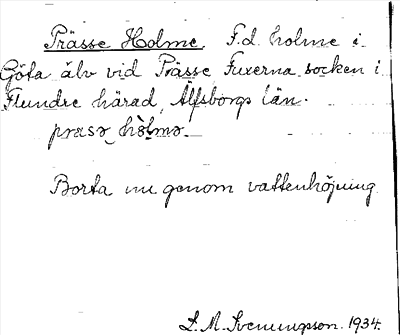 Prässe Holme. F.d. holme i
Göta älv vid Prässe Fuxerna socken i
Flundre härad, Älfsborgs län.
præsə hòlmə
Borta nu genom vattenhöjning
S. M. Svenungson. 1934.